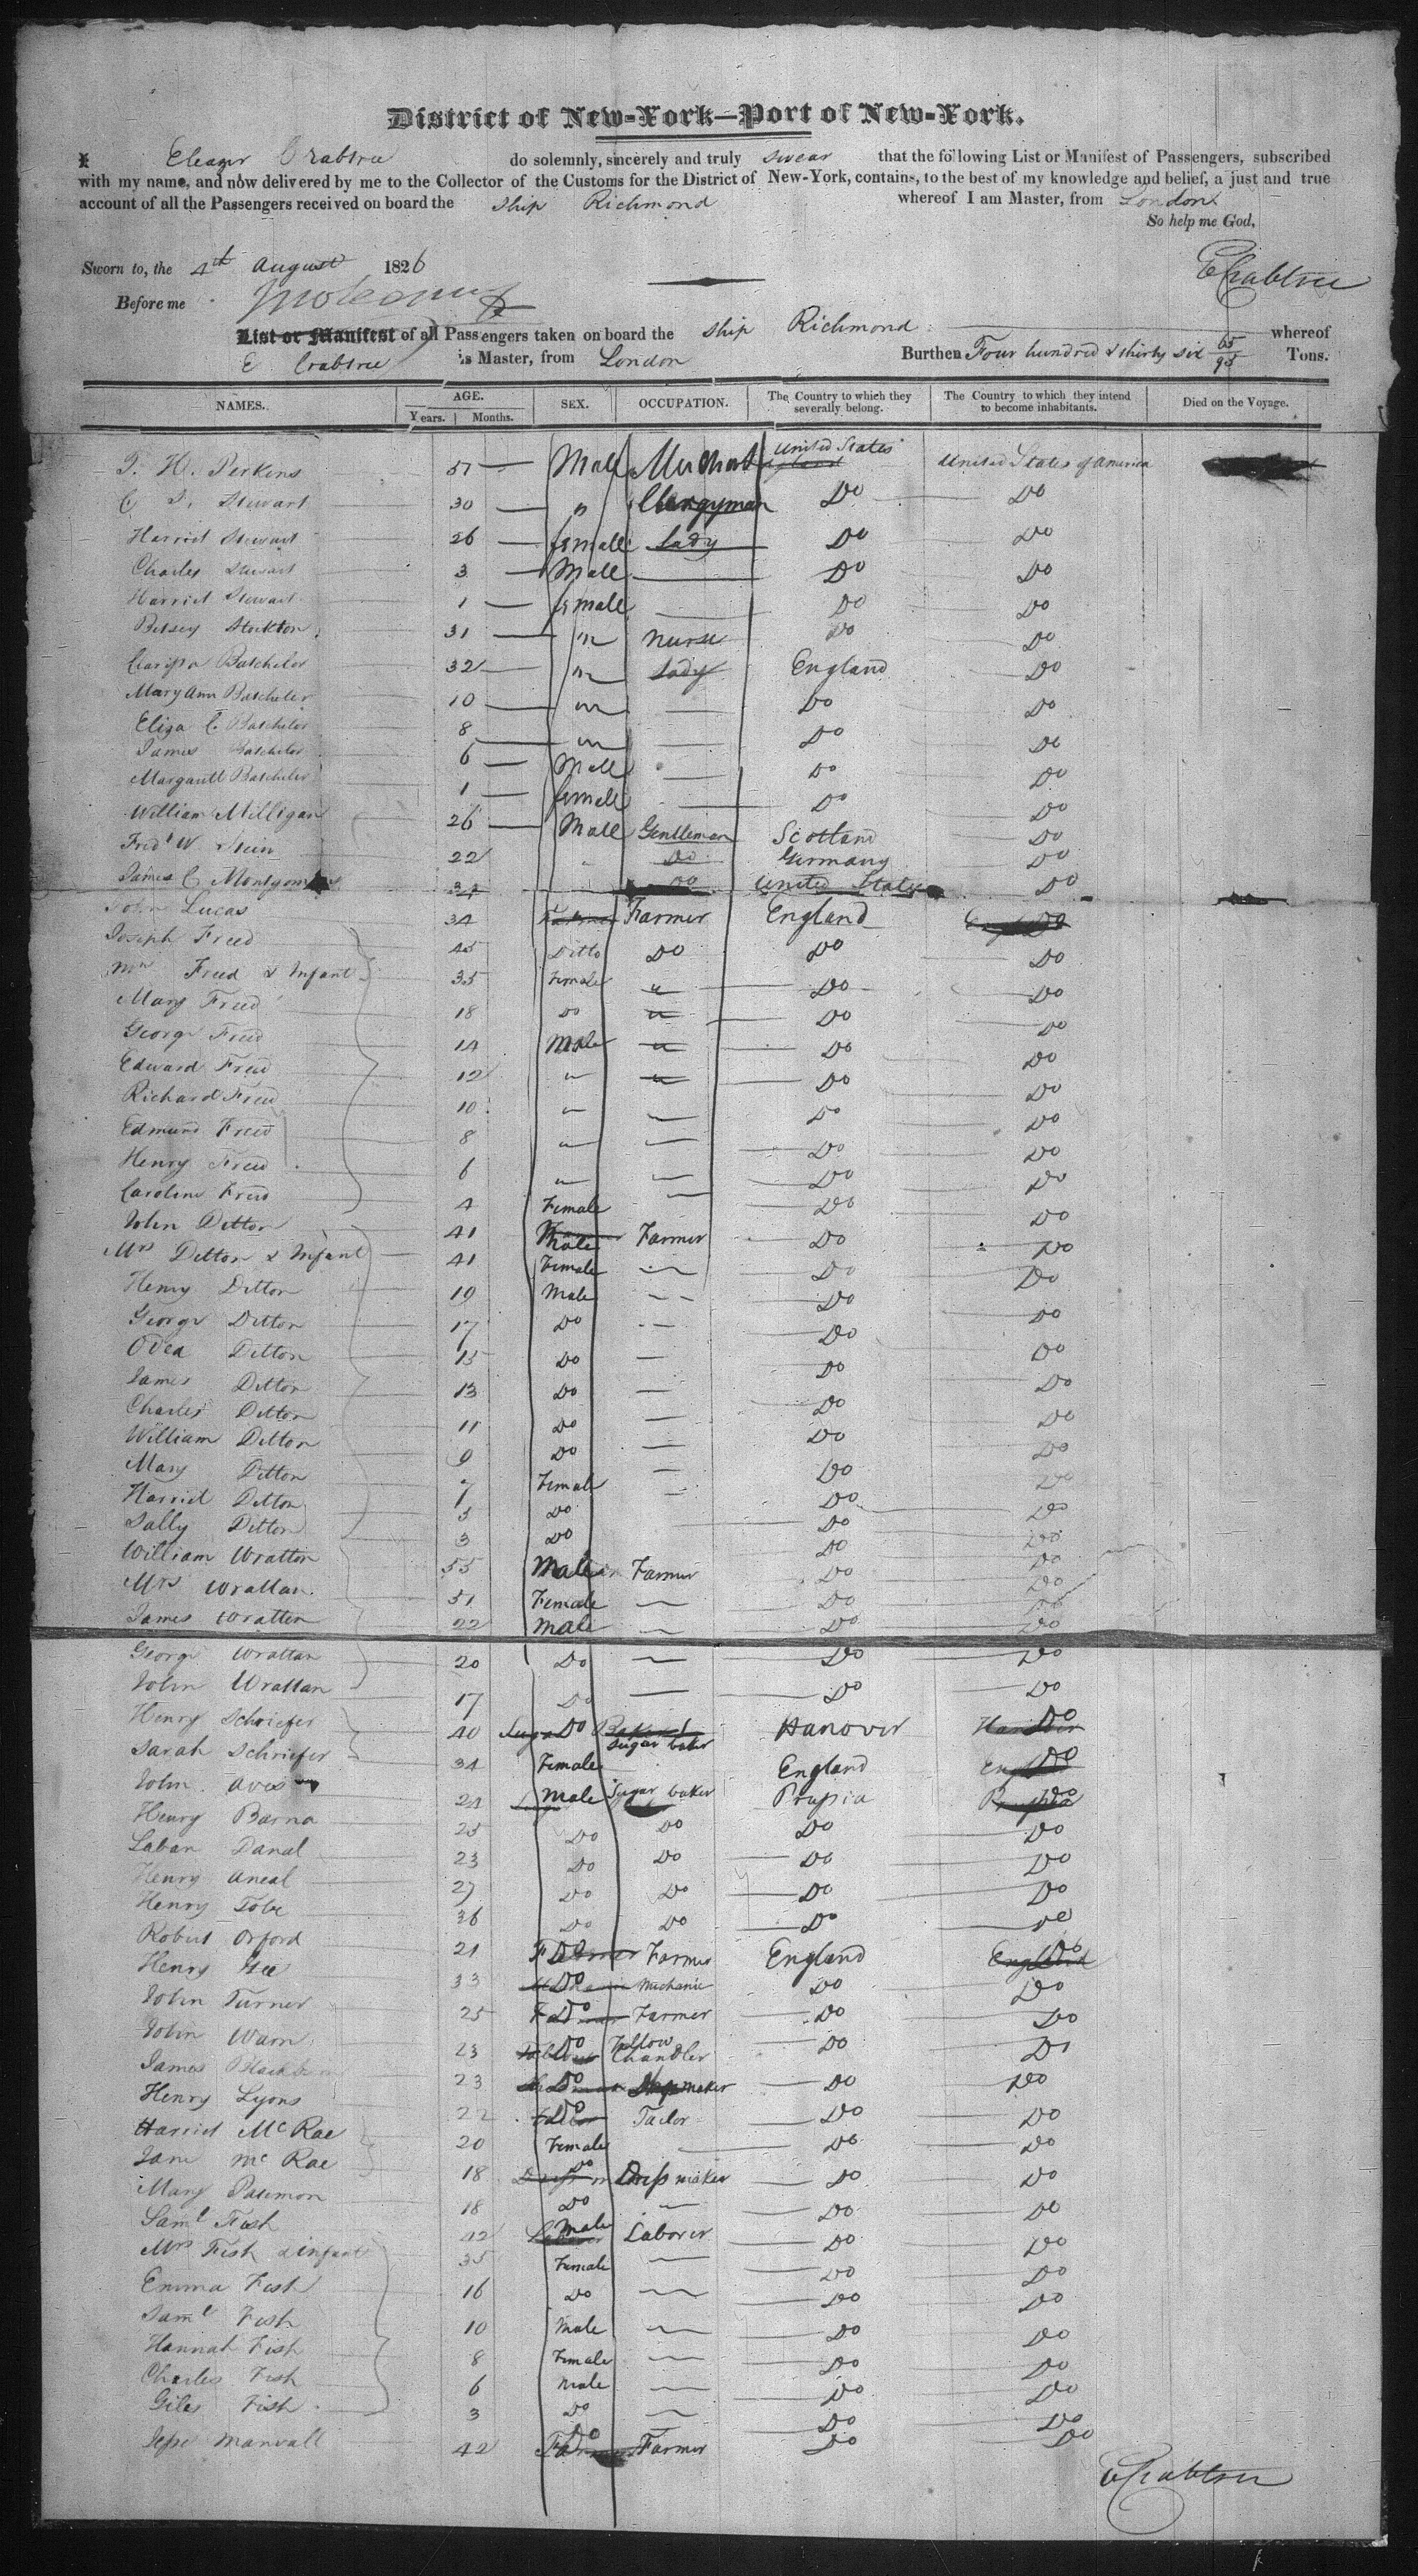 District of New-York—Port of New-York.
I Eleazer Crabtree do solemnly, sincerely and truly swear that the following List or Manifest of Passengers, subscribed
with my name, and now delivered by me to the Collector of the Customs for the District of New-York, contains, to the best of my knowledge and belief, a just and true
account of all the Passengers received on board the ship Richmond whereof I am Master, from London.
So help me God,
Sworn to, the 4th August 1826
E Crabtree
Before me
List or Manifest of all Passengers taken on board the ship Richmond whereof
E Crabtree is Master, from London Burthen Four hundred & thirty six 65/95 Tons.
NAMES. AGE. Years. Months. SEX. OCCUPATION. The Country to which they severally belong. The Country to which they intend to become inhabitants. Died on the Voyage.
T. H. Perkins 57 Male Merchant United States United States of America
C S. Stewart 30 " Clergyman Do Do
Harriet Stewart 26 female Lady Do Do
Charles Stewart 3 Male Do Do
Harriet Stewart 1 female Do Do
Betsey Stockton 31 " nurse Do Do
Clarissa Batchelor 32 " Lady England Do
Mary Ann Batchelor 10 " Do Do
Eliza C. Batchelor 8 " Do Do
James Batchelor 6 Male Do Do
Margarett Batchelor 1 female Do Do
William Milligan 26 Male Gentleman Scotland Do
Fredk W. Stein 22 " Do Germany Do
James C Montgomery 34 " Do United States Do
John Lucas 34 Farmer England Do
Joseph Freed 45 Ditto Do Do Do
Mrs Freed & Infant 35 Female " Do Do
Mary Freed 18 Do " Do Do
George Freed 14 Male " Do Do
Edward Freed 12 " " Do Do
Richard Freed 10 " " Do Do
Edmund Freed 8 " " Do Do
Henry Freed 6 " " Do Do
Caroline Freed 4 Female Do Do
John Ditton 41 Male Farmer Do Do
Mrs Ditton & Infant 41 Female Do Do
Henry Ditton 19 Male Do Do
George Ditton 17 Do Do Do
Odea Ditton 15 Do Do Do
James Ditton 13 Do Do Do
Charles Ditton 11 Do Do Do
William Ditton 9 Do Do Do
Mary Ditton 7 Female Do Do
Harriet Ditton 5 Do Do Do
Sally Ditton 3 Do Do Do
William Wratten 55 Male Farmer Do Do
Mrs Wrattan 51 Female Do Do
James Wratten 22 male Do Do
George Wrattan 20 Do Do Do
John Wrattan 17 Do Do Do
Henry Schriefer 40 Do Sugar baker Hanover Do
Sarah Schriefer 34 Female England Do
John Aves 24 Male Sugar baker Prussia Do
Henry Barna 25 Do Do Do Do
Laban Danal 23 Do Do Do Do
Henry Aneal 27 Do Do Do Do
Henry Tobe 36 Do Do Do Do
Robert Orford 21 Do Farmer England Do
Henry Gee 33 Do Mechanic Do Do
John Turner 25 Do Farmer Do Do
John Warn 23 Do Tallow Chandler Do Do
James 23 Do Do Do
Henry Lyons 22 Do Tailor Do Do
Harriet McRae 20 Female Do Do
Jane McRae 18 Do Dress maker Do Do
Mary 18 Do Do Do
Saml Fish 42 Male Laborer Do Do
Mrs Fish & infant 35 Female Do Do
Emma Fish 16 Do Do Do
Saml Fish 10 Male Do Do
Hannah Fish 8 Female Do Do
Charles Fish 6 Male Do Do
Giles Fish 3 Do Do Do
Jesse Manvall 42 Do Farmer Do Do
E Crabtree